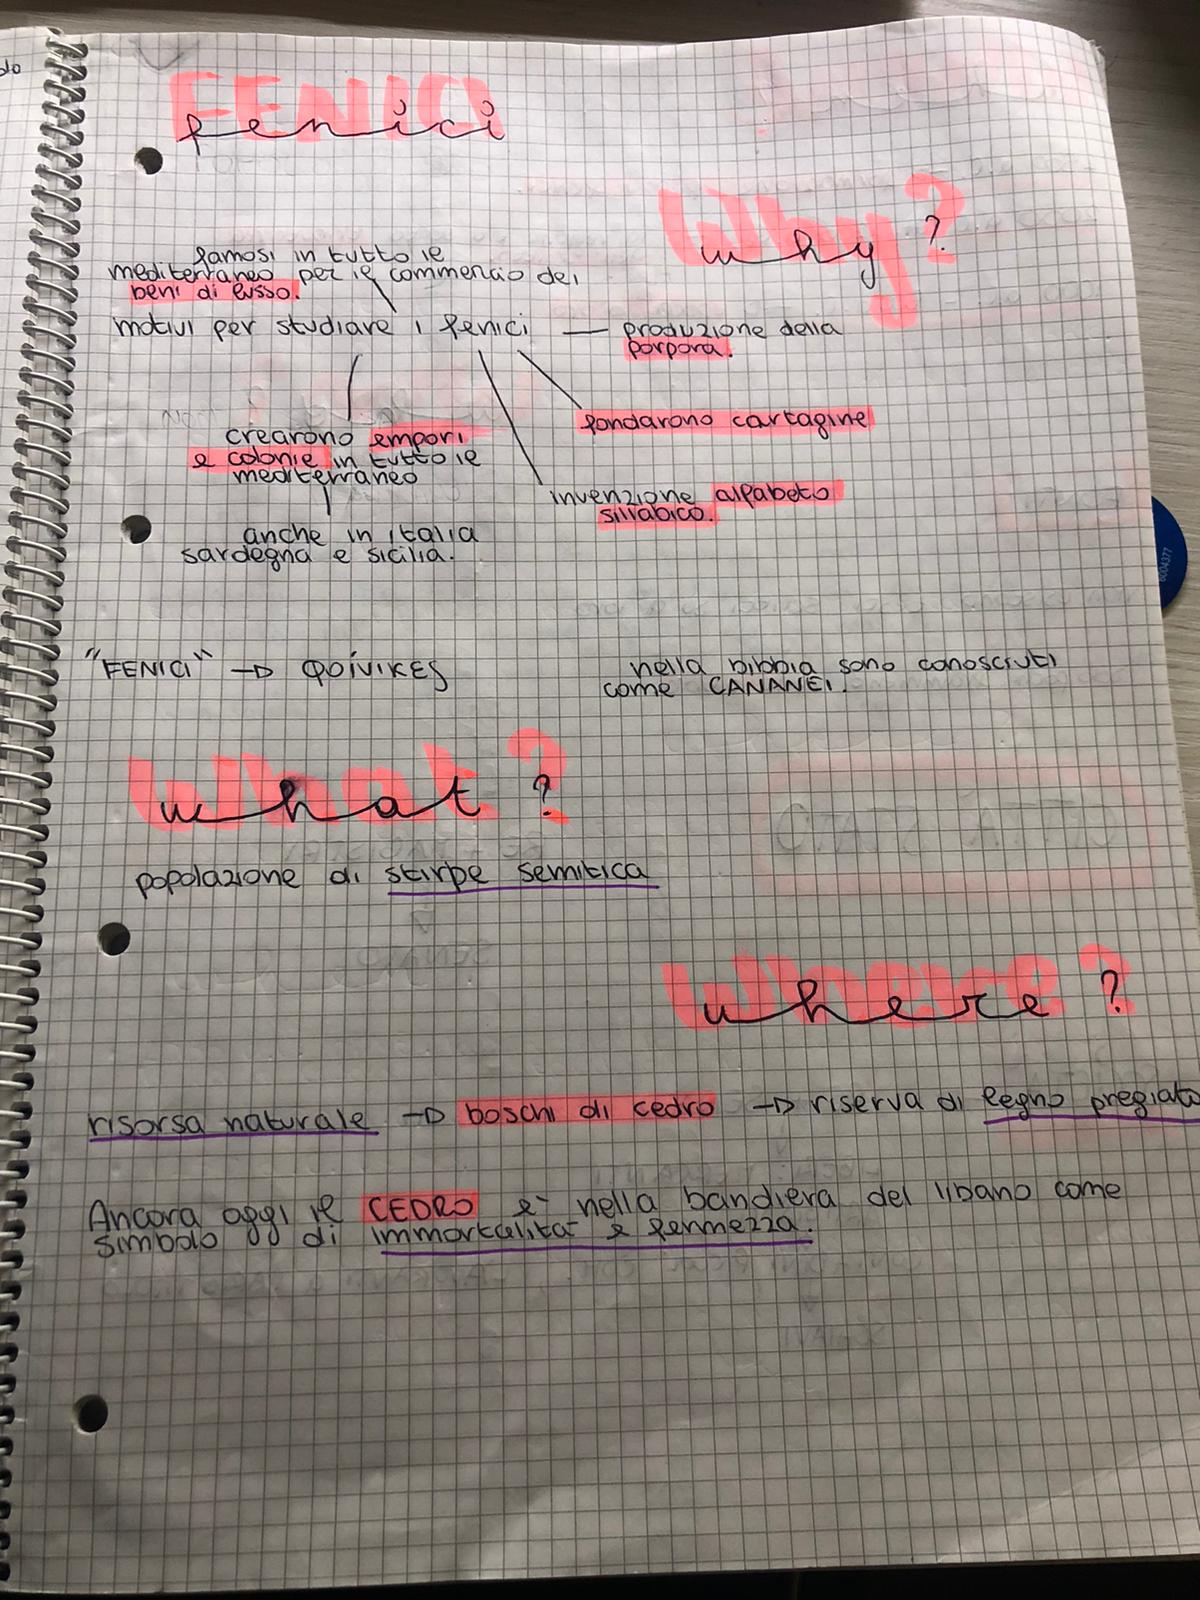 FENICI
fenici
Why?
why?
famosi in tutto il
mediterraneo per il commercio dei
beni di lusso.
motivi per studiare i fenici — produzione della
porpora.
fondarono cartagine
crearono empori
e colonie in tutto il
mediterraneo
invenzione alfabeto
sillabico.
anche in italia
sardegna e sicilia.
"FENICI" → ΦOÍVIKES
nella bibbia sono conosciuti
come CANANEI.
What?
what?
popolazione di stirpe semitica
Where?
where?
risorsa naturale → boschi di cedro → riserva di legno pregiato
Ancora oggi il CEDRO è nella bandiera del libano come
simbolo di immortalità e fermezza.
6004377